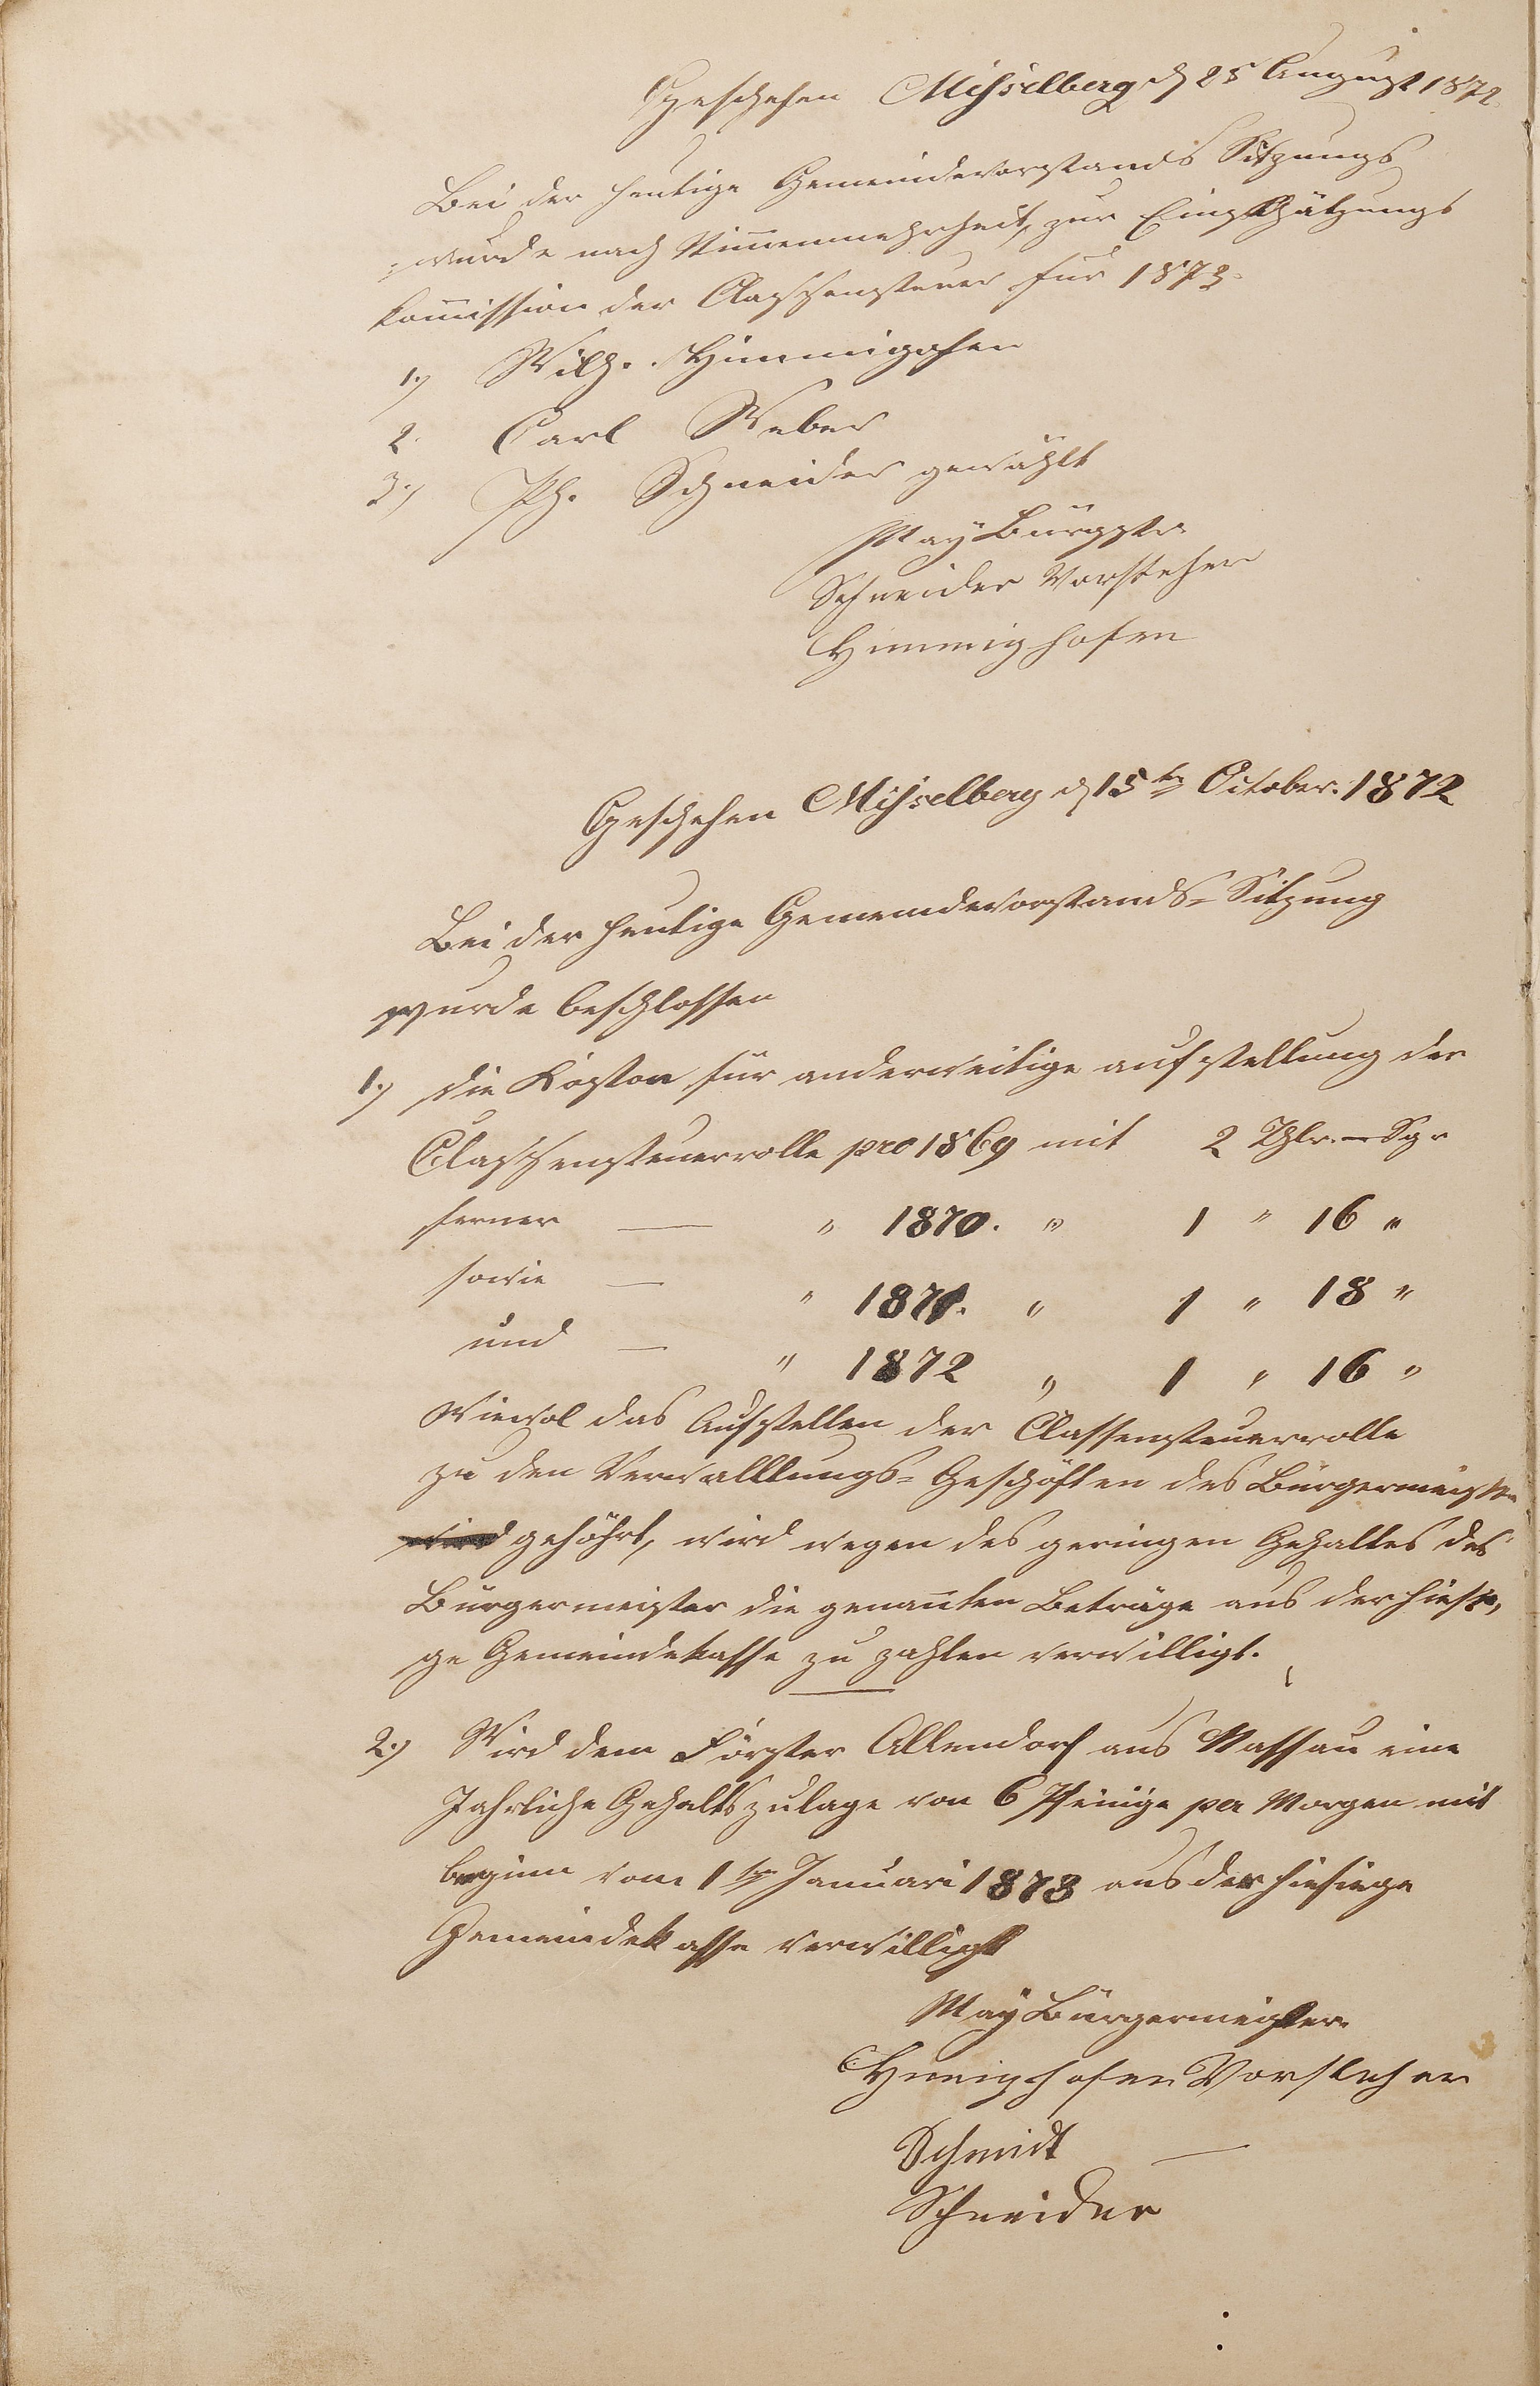 Geschehen Misselberg d 25 August 1872
Bei der heutige Gemeindevorstands Sitzungs
wurde nach Stimenmehrheit, zur Einschätzungs
komission der Classensteuer für 1873.
1.) Wilh. Himmighofen
2. Carl Weber
3.) Ph. Schneider gewählt
May Bürgstr.
Schneider Vorsteher
Himmighofen
Geschehen Misselberg d 15ten October. 1872
Bei der heutige Gemeindevorstands-Sitzung
wurde beschlossen
1.) die Kosten für anderweitige aufstellung der
Classensteuerrolle pro 1869 mit 2 Thlr. – Sgr
ferner — " 1870. " 1 " 16 "
sowie — " 1871. " 1 " 18 "
und — " 1872 " 1 " 16 "
Wiewol das Aufstellen der Classensteuerrolle
zu den Verwalltungs-Geschäften des Bürgermeister
wird gehöhrt, wird wegen des geringen Gehaltes des
Bürgermeister die genanten Beträge aus der hiesi,
ge Gemeindekasse zu zahlen verwilligt.
2.) Wird dem Förster Allendorf aus Nassau eine
Jahrliche Gehaltszulage von 6 Pfenige per Morgen mit
beginn vom 1ten Januari 1873 aus der hiesiege
Gemeindekasse verwilligt
May Bürgermeister
Himighofen Vorsteher
Schmidt —
Schneider